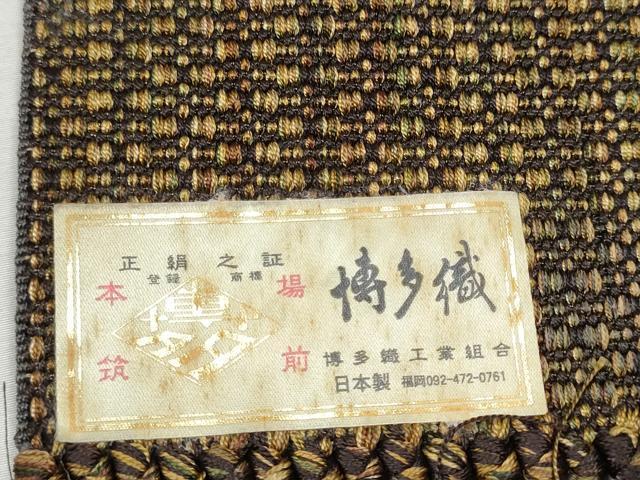 正絹之証
登録 商標
本場
筑前
博多織
博多織工業組合
日本製 福岡092-472-0761